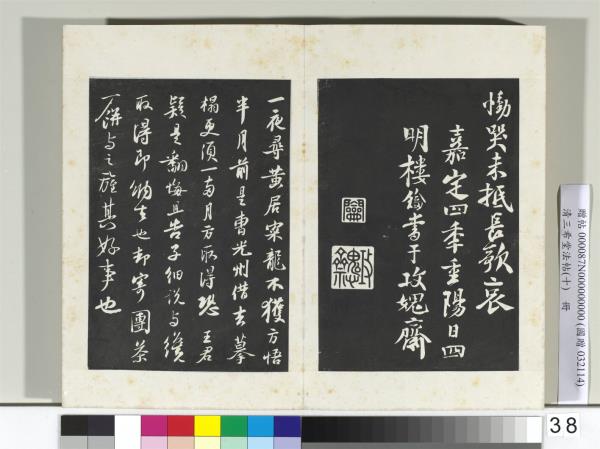 慟哭未抵長歌哀
嘉定四年重陽日四
明樓鑰書于攻媿齋
一夜尋黃居寀龍不獲方悟
半月前是曹光州借去摹
榻更須一兩月方取得恐王君
疑是翻悔且告子細說与纔
取得即納去也却寄團茶
一餅与之旌其好事也
贈帖 000087N000000000 (國贈 032114)
清三希堂法帖(十) 冊
38